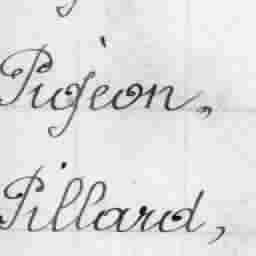 Pigeon,
Pillard,